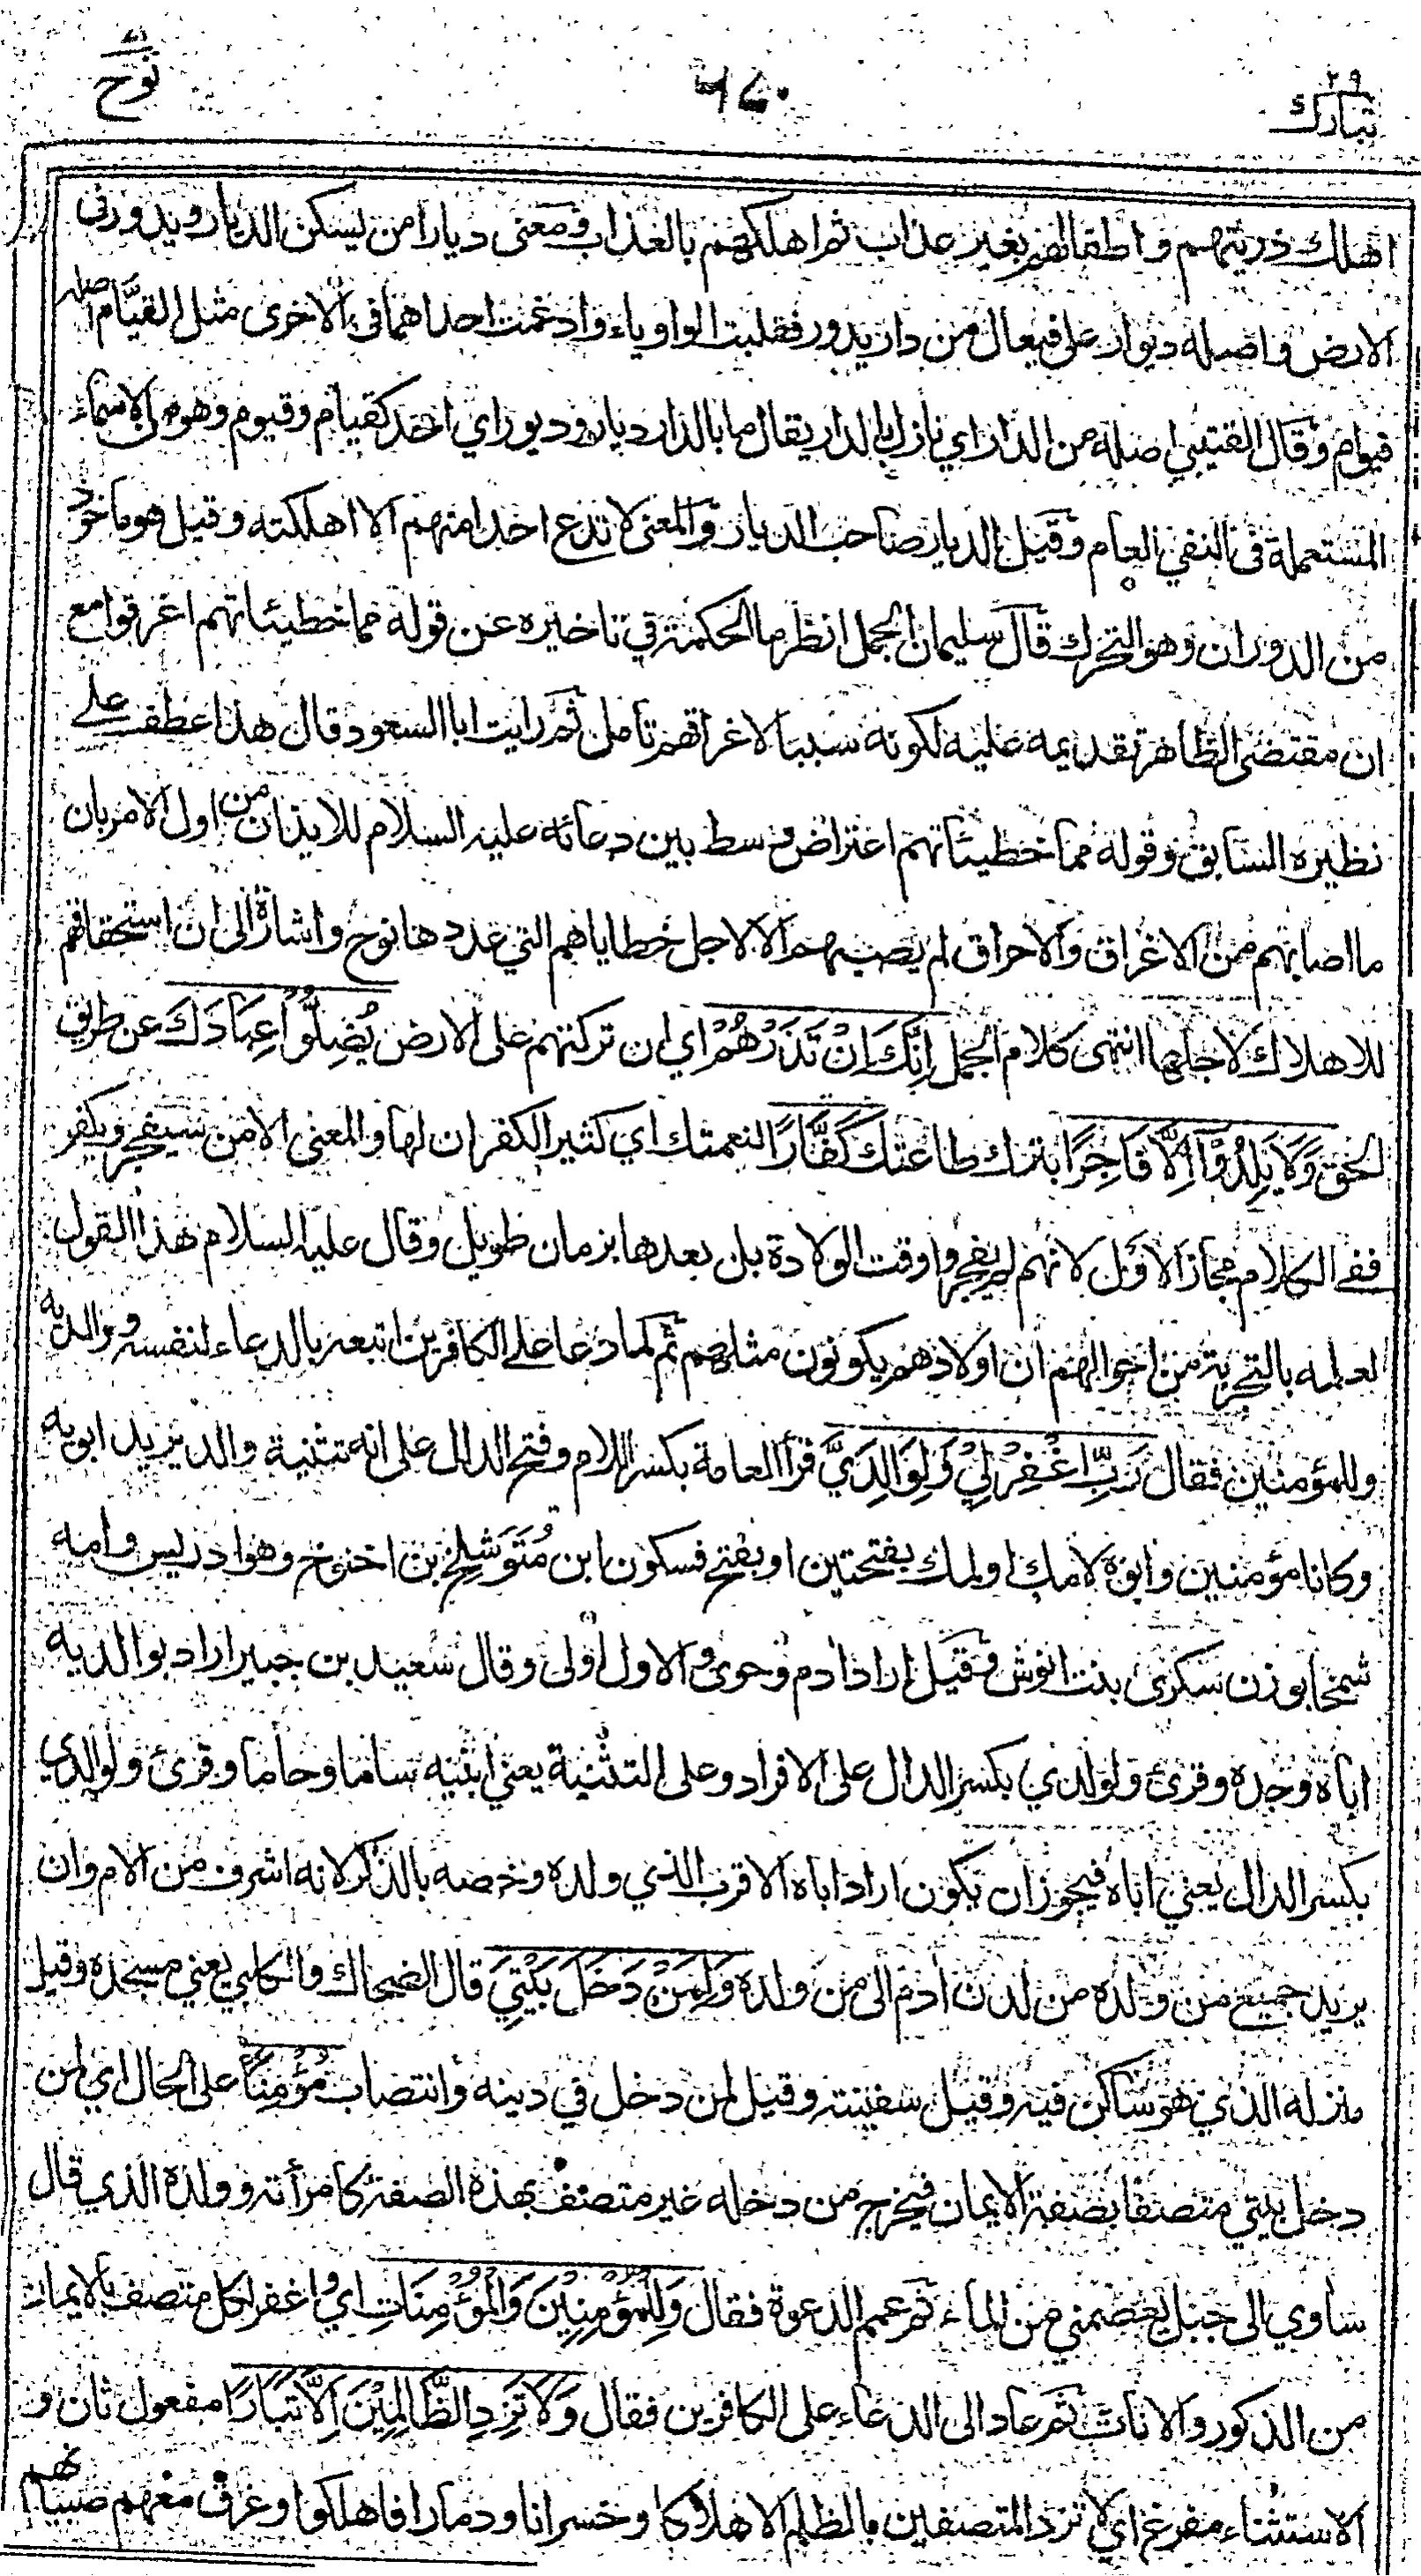 تبارك ٢٩
٤٧٠
نوح
اهلك ذريتهم واطفالهم بغير عذاب ثم اهلكهم بالعذاب ومعنى ديارا من يسكن الديار ويدور فى
الارض واصله ديوار على فيعال من دار يدور فقلبت الواو ياء وادغمت احداهما فى الاخرى مثل القيّام اصله
قيوام وقال القتيبي اصله من الدار اي نازل بالدار يقال ما بالدار ديار وديور اي احد كقيام وقيوم وهو من الاسماء
المستعملة فى النفي العام وقيل الديار صاحب الديار والمعنى لا تدع احدا منهم الا اهلكته وقيل هو ماخوذ
من الدوران وهو التحرك قال سليمان الجمل انظر ما الحكمة في تاخيره عن قوله مما خطيئاتهم اغرقوا مع
ان مقتضى الظاهر تقديمه عليه لكونه سببا لاغراقهم تامل ثم رايت ابا السعود قال هذا عطف على
نظيره السابق وقوله مما خطيئاتهم اعتراض وسط بين دعائه عليه السلام للايذان من اول الامر بان
ما اصابهم من الاغراق والاحراق لم يصبهم الا لاجل خطاياهم التي عددها نوح واشارة الى ان استحقاقهم
للاهلاك لاجلها انتهى كلام الجمل اِنَّكَ اِنْ تَذَرْهُمْ اي ان تركتهم على الارض يُضِلُّوْا عِبَادَكَ عن طريق
الحق وَلَا يَلِدُوْۤا اِلَّا فَاجِرًا بترك طاعتك كَفَّارًا لنعمتك اي كثير الكفران لها والمعنى الا من سيفجر ويكفر
ففي الكلام مجاز الاول لانهم لم يفجروا وقت الولادة بل بعدها بزمان طويل وقال عليه السلام هذا القول
لعلمه بالتجربة من احوالهم ان اولادهم يكونون مثلهم ثم لما دعا على الكافرين اتبعه بالدعاء لنفسه ووالديه
وللمؤمنين فقال رَبِّ اغْفِرْ لِيْ وَلِوَالِدَيَّ قرأ العامة بكسر اللام وفتح الدال على انه تثنية والد يريد ابويه
وكانا مؤمنين وابوه لامك او لمك بفتحتين او بفتح فسكون ابن مُتَوَشْلِخ بن اخنوخ وهو ادريس وامه
شمخا بوزن سكرى بنت انوش وقيل اراد ادم وحوى والاول اولى وقال سعيد بن جبير اراد بوالديه
اباه وجده وقرئ ولوالدي بكسر الدال على الافراد وعلى التثنية يعني ابنيه ساما وحاما وقرئ ولوالدي
بكسر الدال يعني اباه فيجوز ان يكون اراد اباه الاقرب الذي ولده وخصه بالذكر لانه اشرف من الام وان
يريد جميع من ولده من لدن ادم الى من ولده وَلِمَنْ دَخَلَ بَيْتِيَ قال الضحاك والكلبي يعني مسجده وقيل
منزله الذي هو ساكن فيه وقيل سفينته وقيل لمن دخل في دينه وانتصاب مُؤْمِنًا على الحال اي لمن
دخل بيتي متصفا بصفة الايمان فيخرج من دخله غير متصف بهذه الصفة كامرأته وولده الذي قال
ساوي الى جبل يعصمني من الماء ثم عمم الدعوة فقال وَلِلْمُؤْمِنِيْنَ وَالْمُؤْمِنَاتِ اي واغفر لكل متصف بالايمان
من الذكور والاناث ثم عاد الى الدعاء على الكافرين فقال وَلَا تَزِدِ الظَّالِمِيْنَ اِلَّا تَبَارًا مفعول ثان و
الاستثناء مفرغ اي لا تزد المتصفين بالظلم الا هلاكا وخسرانا ودمارا فاهلكوا وغرق معهم صبيانهم